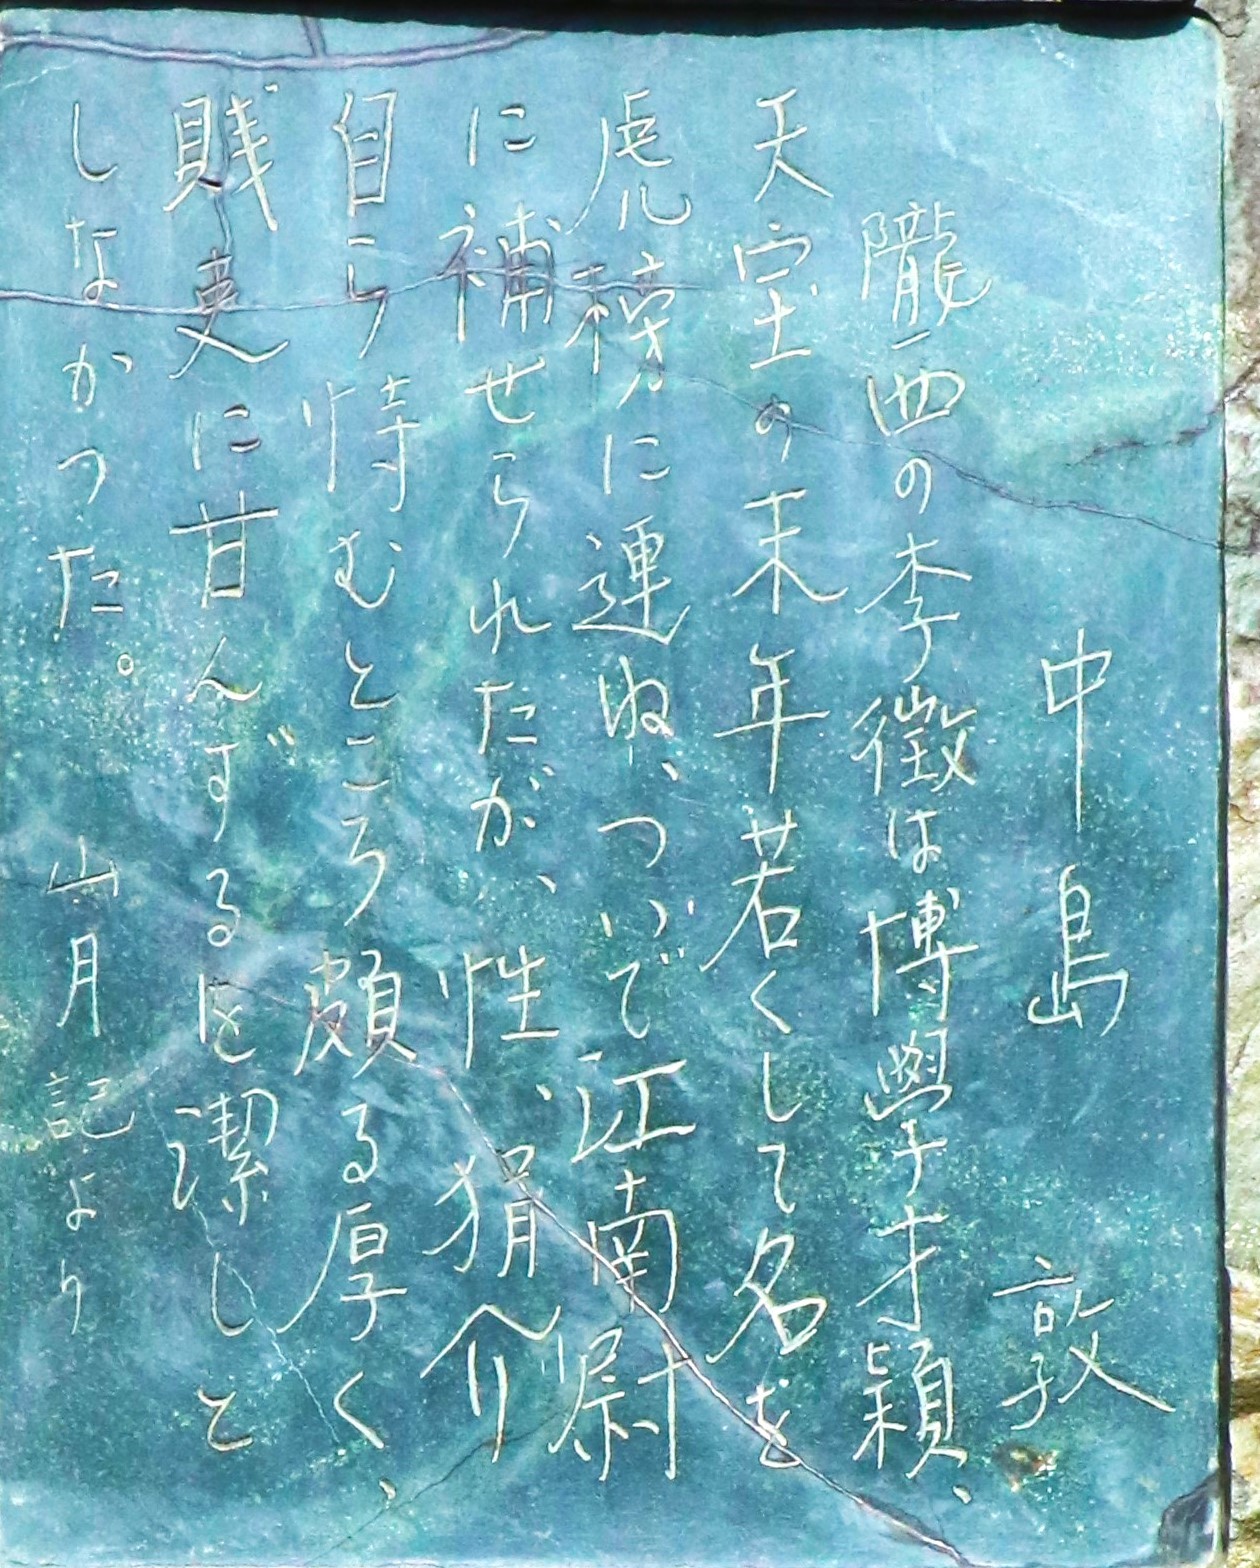 中島 敦
隴西の李徴は博學才穎、
天宝の末年若くして名を
虎榜に連ね、ついで江南尉
に補せられたが、性、狷介
自ら恃むところ頗る厚く、
賎吏に甘んずるを潔しと
しなかった。 山月記より